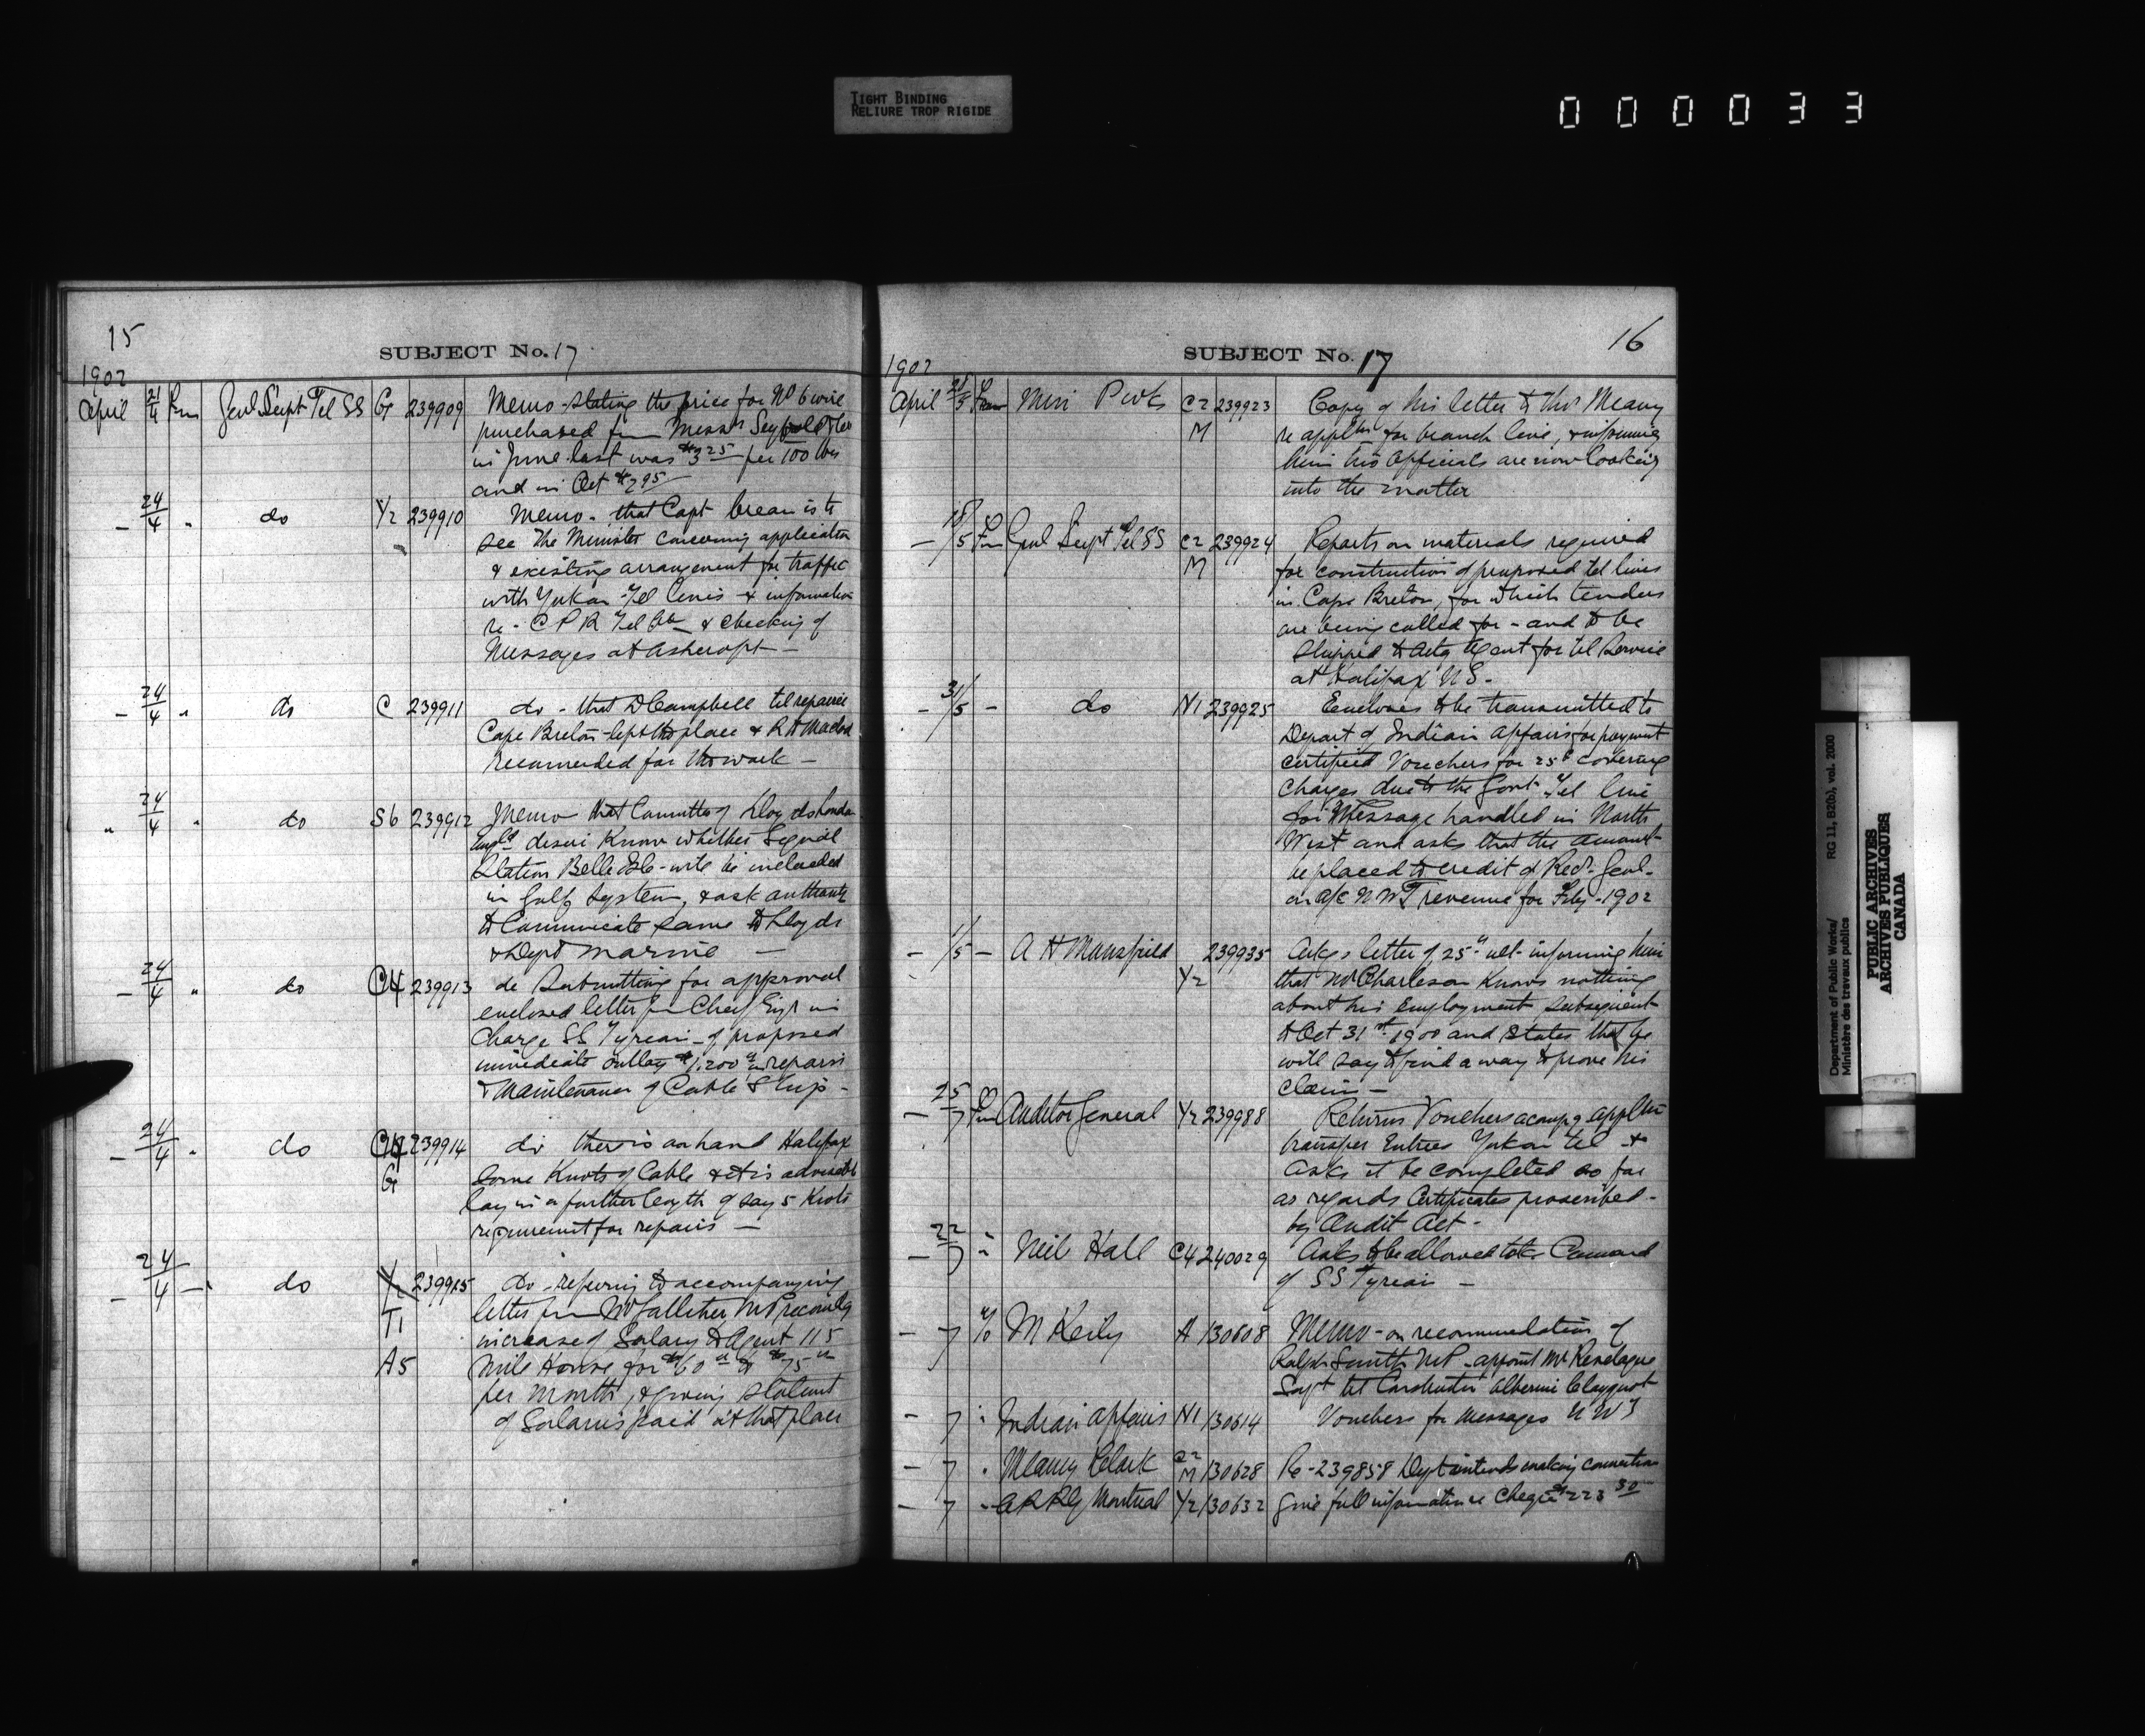 TIGHT BINDING
RELIURE TROP RIGIDE
000033
15
SUBJECT No. 17
1902
April 21/4 Genl Supt Tel SS G 239909 Memo - stating the price for No 6 wire
purchased from Messrs
in June last was $3 25 per 100 lbs
and in Oct $2 95
- 24/4 " do Y2 239910 Memo - that Capt is to
see The Minister concerning application
& existing arrangement for traffic
with Yukon Tel lines & information
re - C P R Tel Co & checking of
Messages at Ashcroft -
- 24/4 " do C 239911 do - that D Campbell tel repairer
Cape Breton left the place & R
recommended for the work -
" 24/4 " do S6 239912 Memo that Committee of Lloyds London
Engld desire know whether Signal
Station Belle Isle - will be included
in Gulf System, & ask authority
to Communicate same to Lloyds
& Dept Marine -
- 24/4 " do C4 239913 do Submitting for approval
enclosed letter fm Chief Engr in
Charge SS Tyrian - of proposed
immediate outlay $1,200 in repairs
& Maintenance of Cable Ship -
- 24/4 " do C4 239914 do there is on hand Halifax
G some Knots of Cable & it is advisable
lay in a further length of say 5 Knots
requirement for repairs -
- 24/4 - " do Y2 239915 do - referring to accompanying
T1 letter fm Mr Galliher MP recomdg
increase of Salary to Agent 115
A5 Mile House for $60 to $75
per month, & giving statemt
of Salaries paid at that place
16
SUBJECT No. 17
1902
April Min P Wks C2 239923 Copy of his letter to Thos Meany
M re appltn for branch line, & informing
him his Officials are now looking
into the matter
- 18/5 Fm Genl Supt Tel SS C2 239924 Reports on materials required
M for construction of proposed tel lines
in Cape Breton, for which tenders
are being called for - and to be
shipped to Actg Agent for tel Service
at Halifax N S -
- 31/5 - do N1 239925 Encloses to be transmitted to
Depart of Indian Affairs for payment
certified Vouchers for 25c covering
charges due to the Govt Tel line
for Message handled in North
West and asks that the amount
be placed to credit of Recr Genl -
on a/c N W T revenue for Feby - 1902
- 1/5 - A H Mansfield 239935 Ackgs letter of 25th ult - informing him
Y2 that Mr Charleson Knows nothing
about his employment subsequent
to Oct 31st 1900 and states that he
will say to find a way to prove his
claim -
- 25/7 Fm Auditor General Y2 239988 Returns Vouchers accompg appltn
transfer Entries Yukon tel - &
asks it be completed so far
as regards Certificates prescribed -
by Audit Act -
- 22/7 " Neil Hall C4 240029 Asks to be allowed take Command
of SS Tyrian -
- 7 M Keily A 130608 Memo - on recommendation of
Ralph Smith M P - appoint Mr
Supt tel Construction Alberni Clayoquot
- 7 " Indian Affairs N1 130614 Vouchers for Messages N W T
- 7 " Meany Clark C2 M 130628 Re - 239858 Dept intends making connection
- 7 " Montreal Y2 130632 Give full information re Cheque $223 30
Department of Public Works/ RG 11, B2(b), vol. 2000
Ministère des travaux publics
PUBLIC ARCHIVES
ARCHIVES PUBLIQUES
CANADA